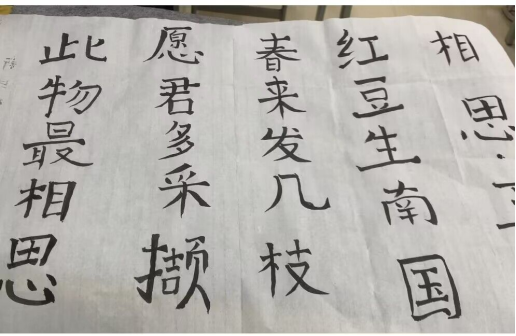 相思·王
红豆生南国
春来发几枝
愿君多采撷
此物最相思